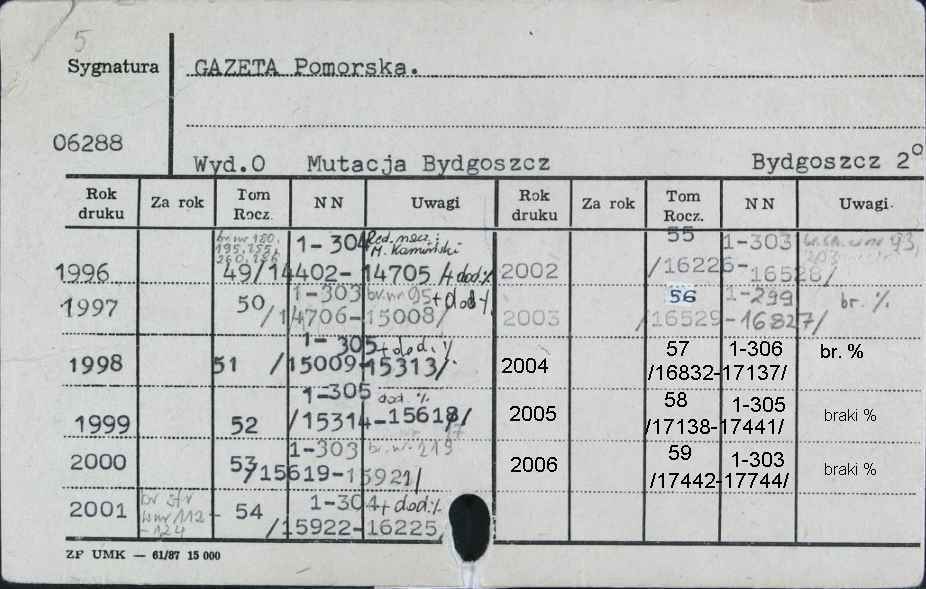 5
Sygnatura GAZETA Pomorska.
06288
Wyd.O Mutacja Bydgoszcz Bydgoszcz 2°
Rok druku Za rok Tom Rocz. NN Uwagi Rok druku Za rok Tom Rocz. NN Uwagi
br. nr 180,
195, 255,
260, 286
1-304 Red. nacz.:
M. Kamiński
1996 49/14402-14705/+dod.%
1997 50 1-303 br. nr 95+dod%
/14706-15008/
1998 51 1-305+dod.%
/15009-15313/
1999 52 1-305 dod. %
/15314-15618/
2000 53 1-303 br. nr 219
/15619-15921/
2001 br str
w nr 112
-124
54 1-304+dod.%
/15922-16225
2002 55 1-303
/16226-16528/
2003 56 1-299 br. %
/16529-16827/
2004 57 1-306 br. %
/16832-17137/
2005 58 1-305 braki %
/17138-17441/
2006 59 1-303 braki %
/17442-17744/
ZP UMK — 61/87 15 000